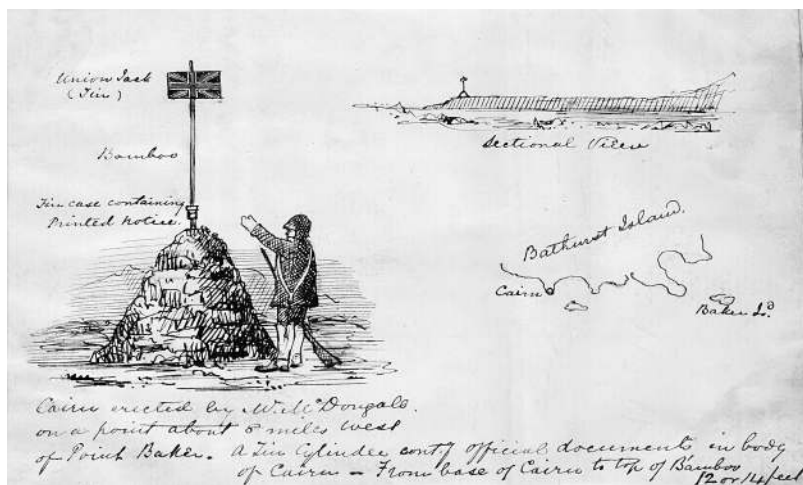 Union Jack
(Tin)
Bamboo
Tin case containing
Printed Notice.
Sectional View
Bathurst Island.
Cairn
Baker Is.
Cairn erected by W. McDougall.
on a point about 8 miles west
of Point Baker. A Tin Cylinder contg official documents in body
of Cairn – From base of Cairn to top of Bamboo
12 or 14 feet